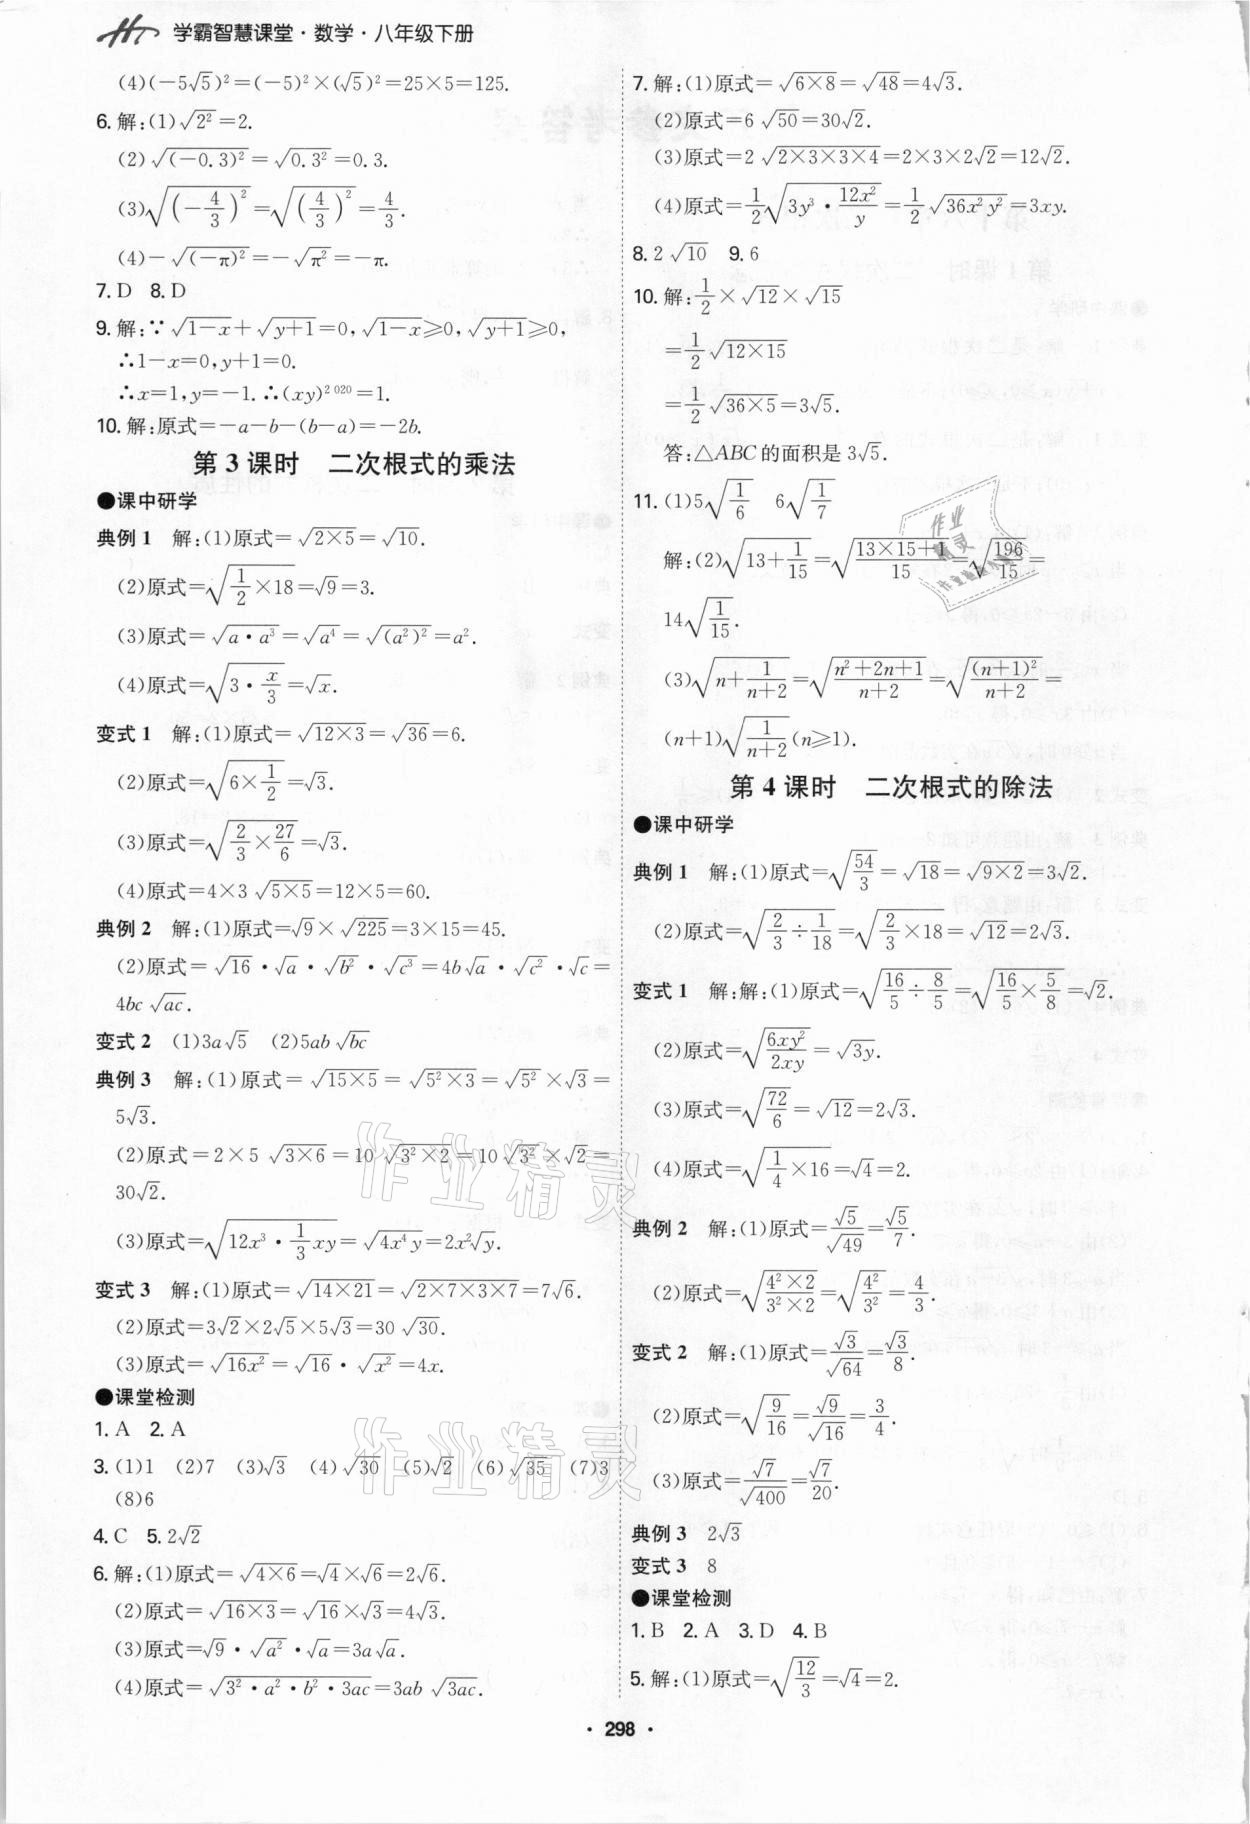 学霸智慧课堂·数学·八年级下册
(4)(-5√5)²=(-5)²×(√5)²=25×5=125.
6.解:(1)√(2²)=2.
(2)√((-0.3)²)=√(0.3²)=0.3.
(3)√((-4/3)²)=√((4/3)²)=4/3.
(4)-√((-π)²)=-√(π²)=-π.
7.D 8.D
9.解:∵√(1-x)+√(y+1)=0,√(1-x)≥0,√(y+1)≥0,
∴1-x=0,y+1=0.
∴x=1,y=-1.∴(xy)^2 020=1.
10.解:原式=-a-b-(b-a)=-2b.
第3课时 二次根式的乘法
●课中研学
典例1 解:(1)原式=√(2×5)=√10.
(2)原式=√(1/2×18)=√9=3.
(3)原式=√(a·a³)=√(a⁴)=√((a²)²)=a².
(4)原式=√(3·x/3)=√x.
变式1 解:(1)原式=√(12×3)=√36=6.
(2)原式=√(6×1/2)=√3.
(3)原式=√(2/3×27/6)=√3.
(4)原式=4×3√(5×5)=12×5=60.
典例2 解:(1)原式=√9×√225=3×15=45.
(2)原式=√16·√a·√(b²)·√(c³)=4b√a·√(c²)·√c=
4bc√(ac).
变式2 (1)3a√5 (2)5ab√(bc)
典例3 解:(1)原式=√(15×5)=√(5²×3)=√(5²)×√3=
5√3.
(2)原式=2×5√(3×6)=10√(3²×2)=10√(3²)×√2=
30√2.
(3)原式=√(12x³·1/3xy)=√(4x⁴y)=2x²√y.
变式3 解:(1)原式=√(14×21)=√(2×7×3×7)=7√6.
(2)原式=3√2×2√5×5√3=30√30.
(3)原式=√(16x²)=√16·√(x²)=4x.
●课堂检测
1.A 2.A
3.(1)1 (2)7 (3)√3 (4)√30 (5)√2 (6)√35 (7)3
(8)6
4.C 5.2√2
6.解:(1)原式=√(4×6)=√4×√6=2√6.
(2)原式=√(16×3)=√16×√3=4√3.
(3)原式=√9·√(a²)·√a=3a√a.
(4)原式=√(3²·a²·b²·3ac)=3ab√(3ac).
7.解:(1)原式=√(6×8)=√48=4√3.
(2)原式=6√50=30√2.
(3)原式=2√(2×3×3×4)=2×3×2√2=12√2.
(4)原式=1/2√(3y³·12x²/y)=1/2√(36x²y²)=3xy.
8.2√10 9.6
10.解:1/2×√12×√15
=1/2√(12×15)
=1/2√(36×5)=3√5.
答:△ABC的面积是3√5.
11.(1)5√(1/6) 6√(1/7)
解:(2)√(13+1/15)=√((13×15+1)/15)=√(196/15)=
14√(1/15).
(3)√(n+1/(n+2))=√((n²+2n+1)/(n+2))=√((n+1)²/(n+2))=
(n+1)√(1/(n+2))(n≥1).
第4课时 二次根式的除法
●课中研学
典例1 解:(1)原式=√(54/3)=√18=√(9×2)=3√2.
(2)原式=√(2/3÷1/18)=√(2/3×18)=√12=2√3.
变式1 解:解:(1)原式=√(16/5÷8/5)=√(16/5×5/8)=√2.
(2)原式=√(6xy²/2xy)=√(3y).
(3)原式=√(72/6)=√12=2√3.
(4)原式=√(1/4×16)=√4=2.
典例2 解:(1)原式=√5/√49=√5/7.
(2)原式=√(4²×2/3²×2)=√(4²/3²)=4/3.
变式2 解:(1)原式=√3/√64=√3/8.
(2)原式=√(9/16)=√9/√16=3/4.
(3)原式=√7/√400=√7/20.
典例3 2√3
变式3 8
●课堂检测
1.B 2.A 3.D 4.B
5.解:(1)原式=√(12/3)=√4=2.
·298·
作业精灵
作业精灵
作业
精灵